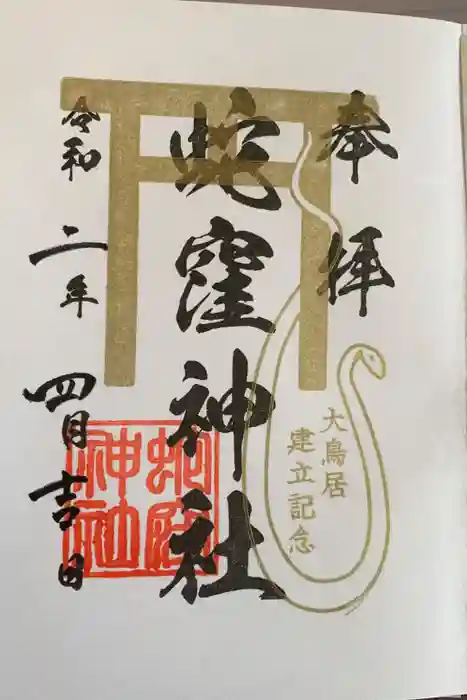 奉拝
蛇窪神社
大鳥居
建立記念
令和二年四月吉日
蛇窪
神社